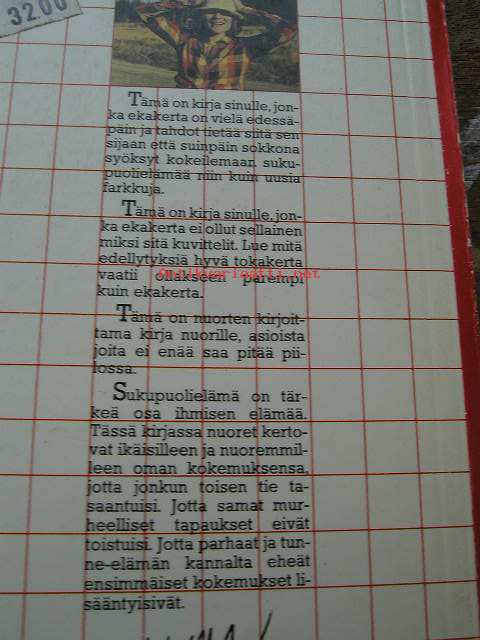 3200
Tämä on kirja sinulle, jon-
ka ekakerta on vielä edessä-
päin ja tahdot tietää siitä sen
sijaan että suinpäin sokkona
syöksyt kokeilemaan suku-
puolielämää niin kuin uusia
farkkuja.
Tämä on kirja sinulle, jon-
ka ekakerta ei ollut sellainen
miksi sitä kuvittelit. Lue mitä
edellytyksiä hyvä tokakerta
vaatii ollakseen parempi
kuin ekakerta.
Tämä on nuorten kirjoit-
tama kirja nuorille, asioista
joita ei enää saa pitää pii-
lossa.
Sukupuolielämä on tär-
keä osa ihmisen elämää.
Tässä kirjassa nuoret kerto-
vat ikäisilleen ja nuoremmil-
leen oman kokemuksensa,
jotta jonkun toisen tie ta-
saantuisi. Jotta samat mur-
heelliset tapaukset eivät
toistuisi. Jotta parhaat ja tun-
ne-elämän kannalta eheät
ensimmäiset kokemukset li-
sääntyisivät.